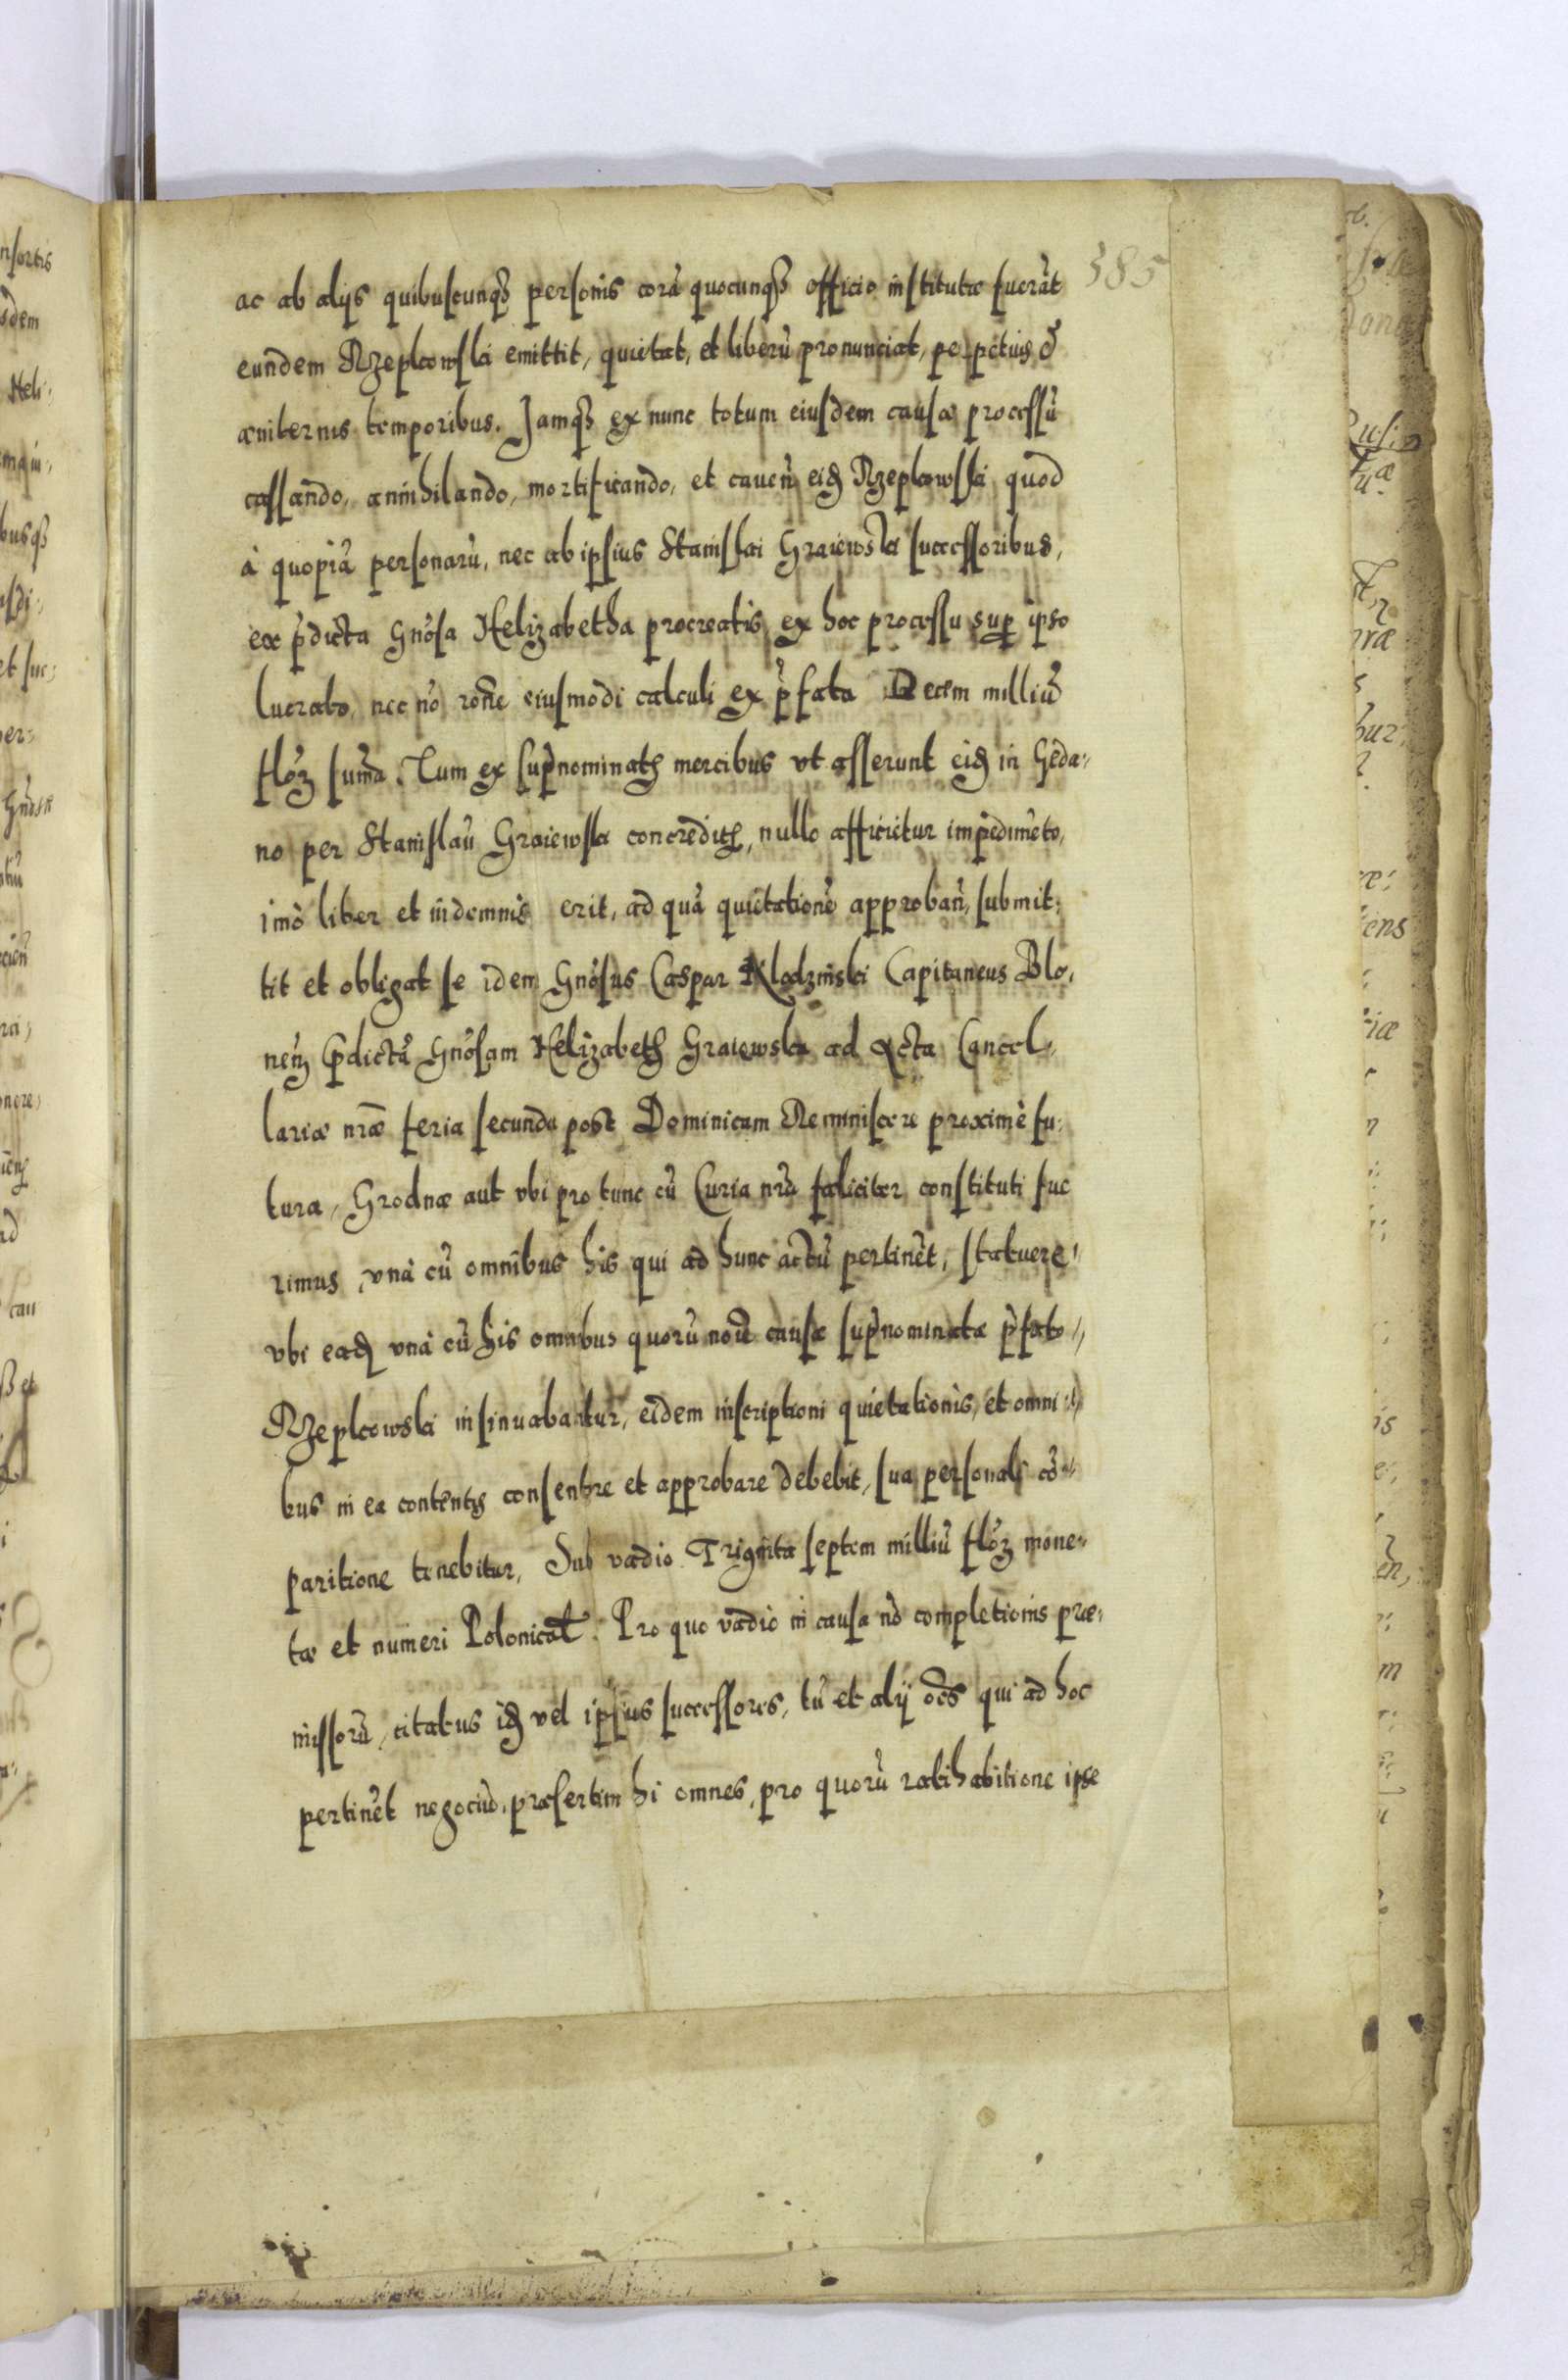 385
ac ab alijs quibuscunqȝ personis corā quocunqȝ officio institutæ fuerāt
eundem Rzeplcowski emittit, quietat, et liberū pronunciat, perpetuis &
æuiternis temporibus. Jamqȝ ex nunc totum eiusdem causæ processū
cassando, annihilando, mortificando, et cauen̄ eid Rzeplcowski quod
à quopiā personarū, nec ab ipsius Stanislai Graiewski successoribus,
ex p̄dicta Gnōsa Helizabetha procreatis, ex hoc processu sup ipso
lucrato, nec nō rōne eiusmodi calculi ex p̄fata Decem milliū
flōȝ sum̄a. Tum ex sup̄nominatȝ mercibus vt asserunt eid in Geda-
no per Stanislaū Graiewski concreditȝ, nullo afficietur impedimēto,
imò liber et indemnis erit, ad quā quietationē approban̄, submit-
tit et obligat se idem Gnōsus Caspar Klodzinski Capitaneus Blo-
nen̄ p̄dictā Gnōsam Helizabetȝ Graiewska ad Acta Cancel-
lariæ nrǣ feria secunda post Dominicam Reminiscere proximè fu-
tura, Grodnæ aut vbi pro tunc cū Curia nrā fæliciter constituti fue
rimus, vnà cū omnibus his qui ad hunc actū pertinēt, statuere,
vbi ead vnà cū his omnibus quorū noīe causæ sup̄nominatæ p̄fato
Rzeplcowski insinuabantur, eidem inscriptioni quietationis, et omni-
bus in ea contentis consentire et approbare debebit, sua personali cō-
paritione tenebitur, Sub vadio Triginta septem milliū flōȝ mone-
tæ et numeri Polonical. Pro quo vadio in causa nō completionis præ-
missorū, citatus id vel ipsius successores, tū et alij oēs qui ad hoc
pertinēt negociū, præsertim hi omnes, pro quorū ratihabitione ipse